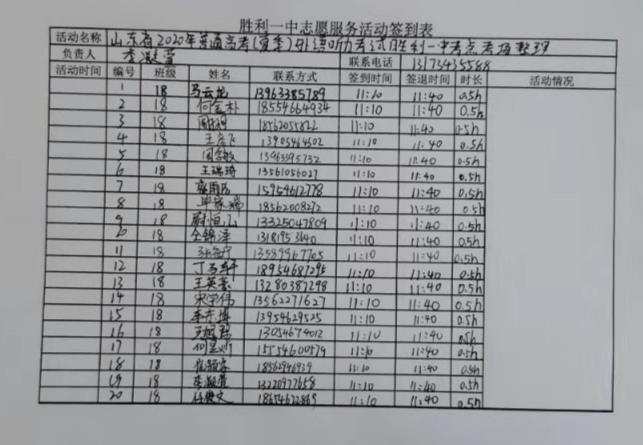 胜利一中志愿服务活动签到表
活动名称 山东省2020年普通高考(夏季)外语听力考试胜利一中考点考场整理
负责人 李凝萱 联系电话 13173435588
活动时间 编号 班级 姓名 联系方式 签到时间 签退时间 时长 活动情况
1 18 马云龙 13963385789 11:10 11:40 0.5h
2 18 何金朴 18554664934 11:10 11:40 0.5h
3 18 18562055822 11:10 11:40 0.5h
4 18 王彦飞 13905464502 11:10 11:40 0.5h
5 18 周含敏 13963395732 11:10 11:40 0.5h
6 18 王瑞琦 13561056027 11:10 11:40 0.5h
7 18 15954612778 11:10 11:40 0.5h
8 18 18562008272 11:10 11:40 0.5h
9 18 13325047809 11:10 11:40 0.5h
10 18 仝锦泽 11:10 11:40 0.5h
11 18 13589967705 11:10 11:40 0.5h
12 18 18954687295 11:10 11:40 0.5h
13 18 王英豪 13280387298 11:10 11:40 0.5h
14 18 宋学伟 13562271627 11:10 11:40 0.5h
15 18 李东博 13954629525 11:10 11:40 0.5h
16 18 13054674012 11:10 11:40 0.5h
17 18 15554600579 11:10 11:40 0.5h
18 18 18562946939 11:10 11:40 0.5h
19 18 李凝萱 13220977658 11:10 11:40 0.5h
20 18 18654622869 11:10 11:40 0.5h